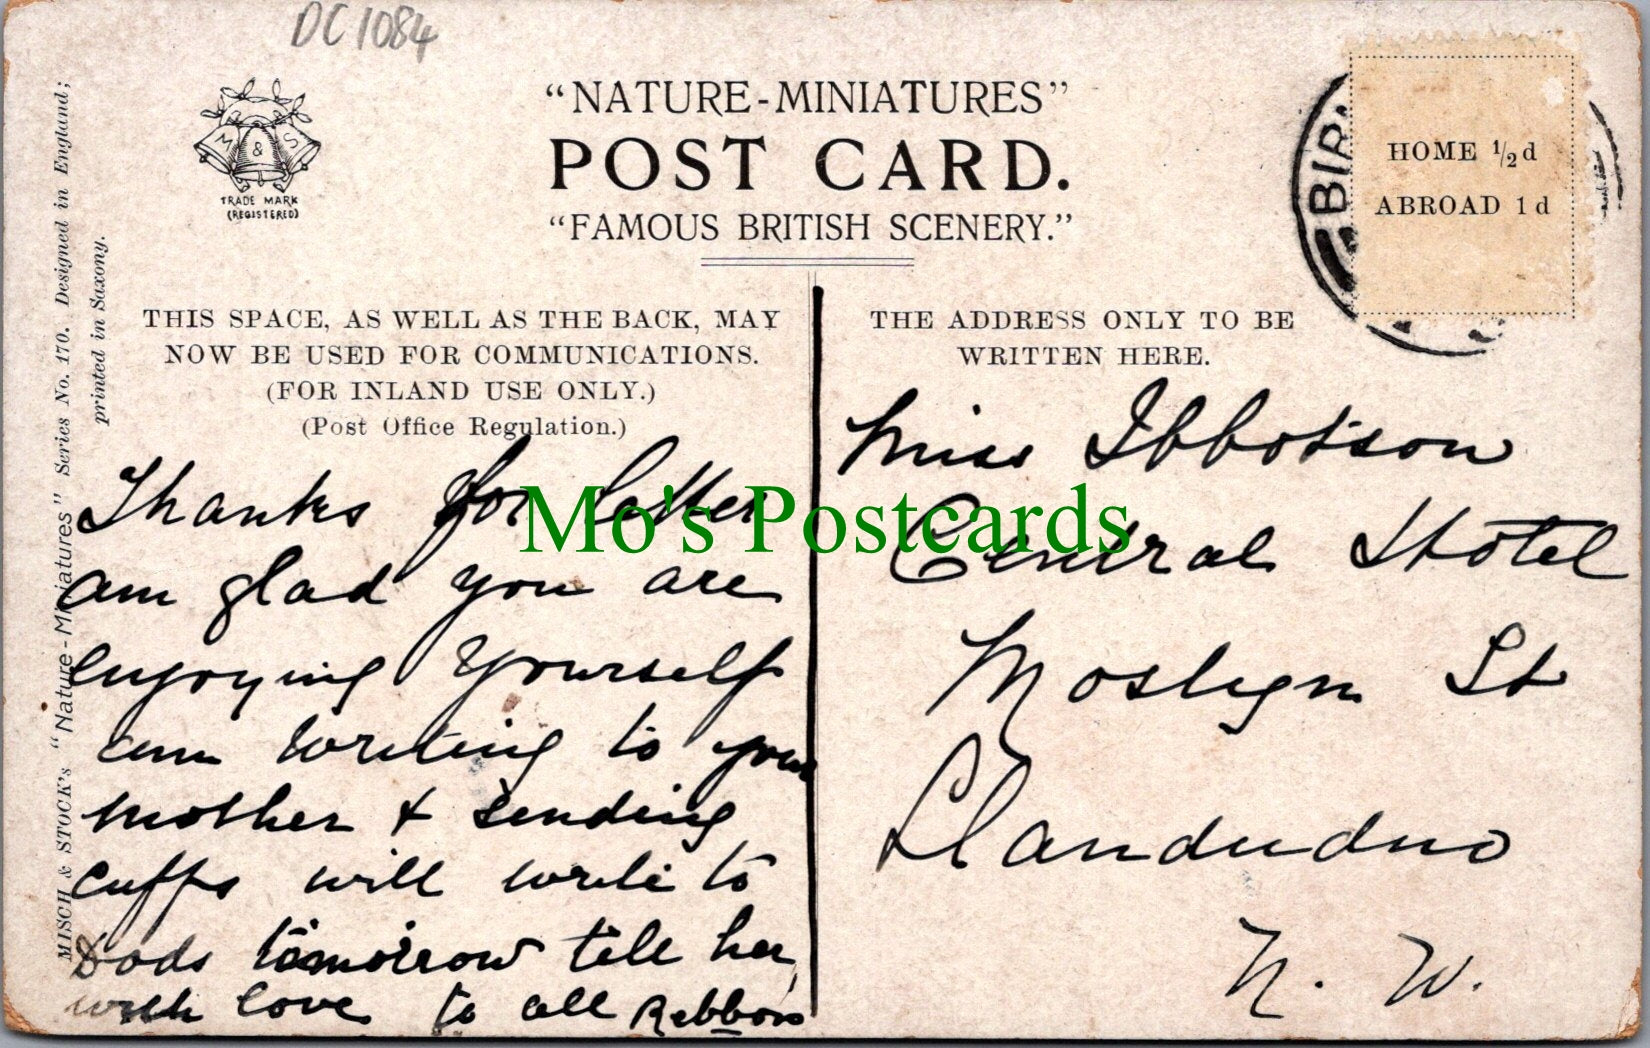 DC1084
M & S
TRADE MARK
(REGISTERED)
"NATURE-MINIATURES"
POST CARD.
"FAMOUS BRITISH SCENERY."
BIR
HOME ½d
ABROAD 1d
MISCH & STOCK's "Nature-Miniatures" Series No. 170. Designed in England;
printed in Saxony.
THIS SPACE, AS WELL AS THE BACK, MAY
NOW BE USED FOR COMMUNICATIONS.
(FOR INLAND USE ONLY.)
(Post Office Regulation.)
Thanks for letter
am glad you are
enjoying yourself
am writing to your
mother & sending
cuffs will write to
Dods tomorrow tell her
with love to all
THE ADDRESS ONLY TO BE
WRITTEN HERE.
Miss Ibbotson
Central Hotel
Mostyn St
Llandudno
N. W.
Mo's Postcards